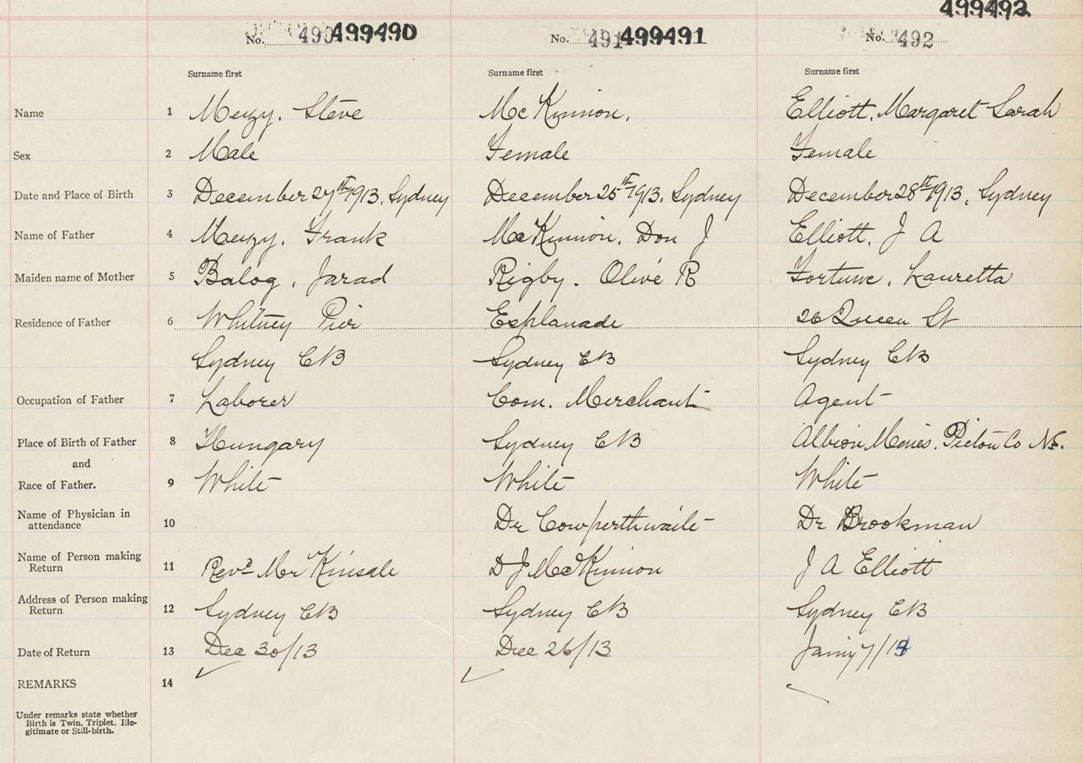 499490 499491 499492
No. 490 No. 491 No. 492
Surname first Surname first Surname first
Name 1 Meizy, Steve McKinnon, Elliott, Margaret Sarah
Sex 2 Male Female Female
Date and Place of Birth 3 December 27th 1913, Sydney December 25th 1913, Sydney December 28th 1913, Sydney
Name of Father 4 Meizy, Frank McKinnon, Don J Elliott, J A
Maiden name of Mother 5 Balog, Jarad Rigby. Olive R Fortune, Lauretta
Residence of Father 6 Whitney Pier Esplanade 26 Queen St
Sydney CB Sydney CB Sydney CB
Occupation of Father 7 Laborer Com. Merchant Agent
Place of Birth of Father 8 Hungary Sydney CB Albion Mines. Pictou Co NS.
and
Race of Father. 9 White White White
Name of Physician in
attendance 10 Dr Cowperthwaite Dr Brookman
Name of Person making
Return 11 Revd Mr Kinsale D J McKinnon J A Elliott
Address of Person making
Return 12 Sydney CB Sydney CB Sydney CB
Date of Return 13 Dec 30/13 Dec 26/13 Jany 7/14
REMARKS 14
Under remarks state whether
Birth is Twin, Triplet, Ille-
gitimate or Still-birth.